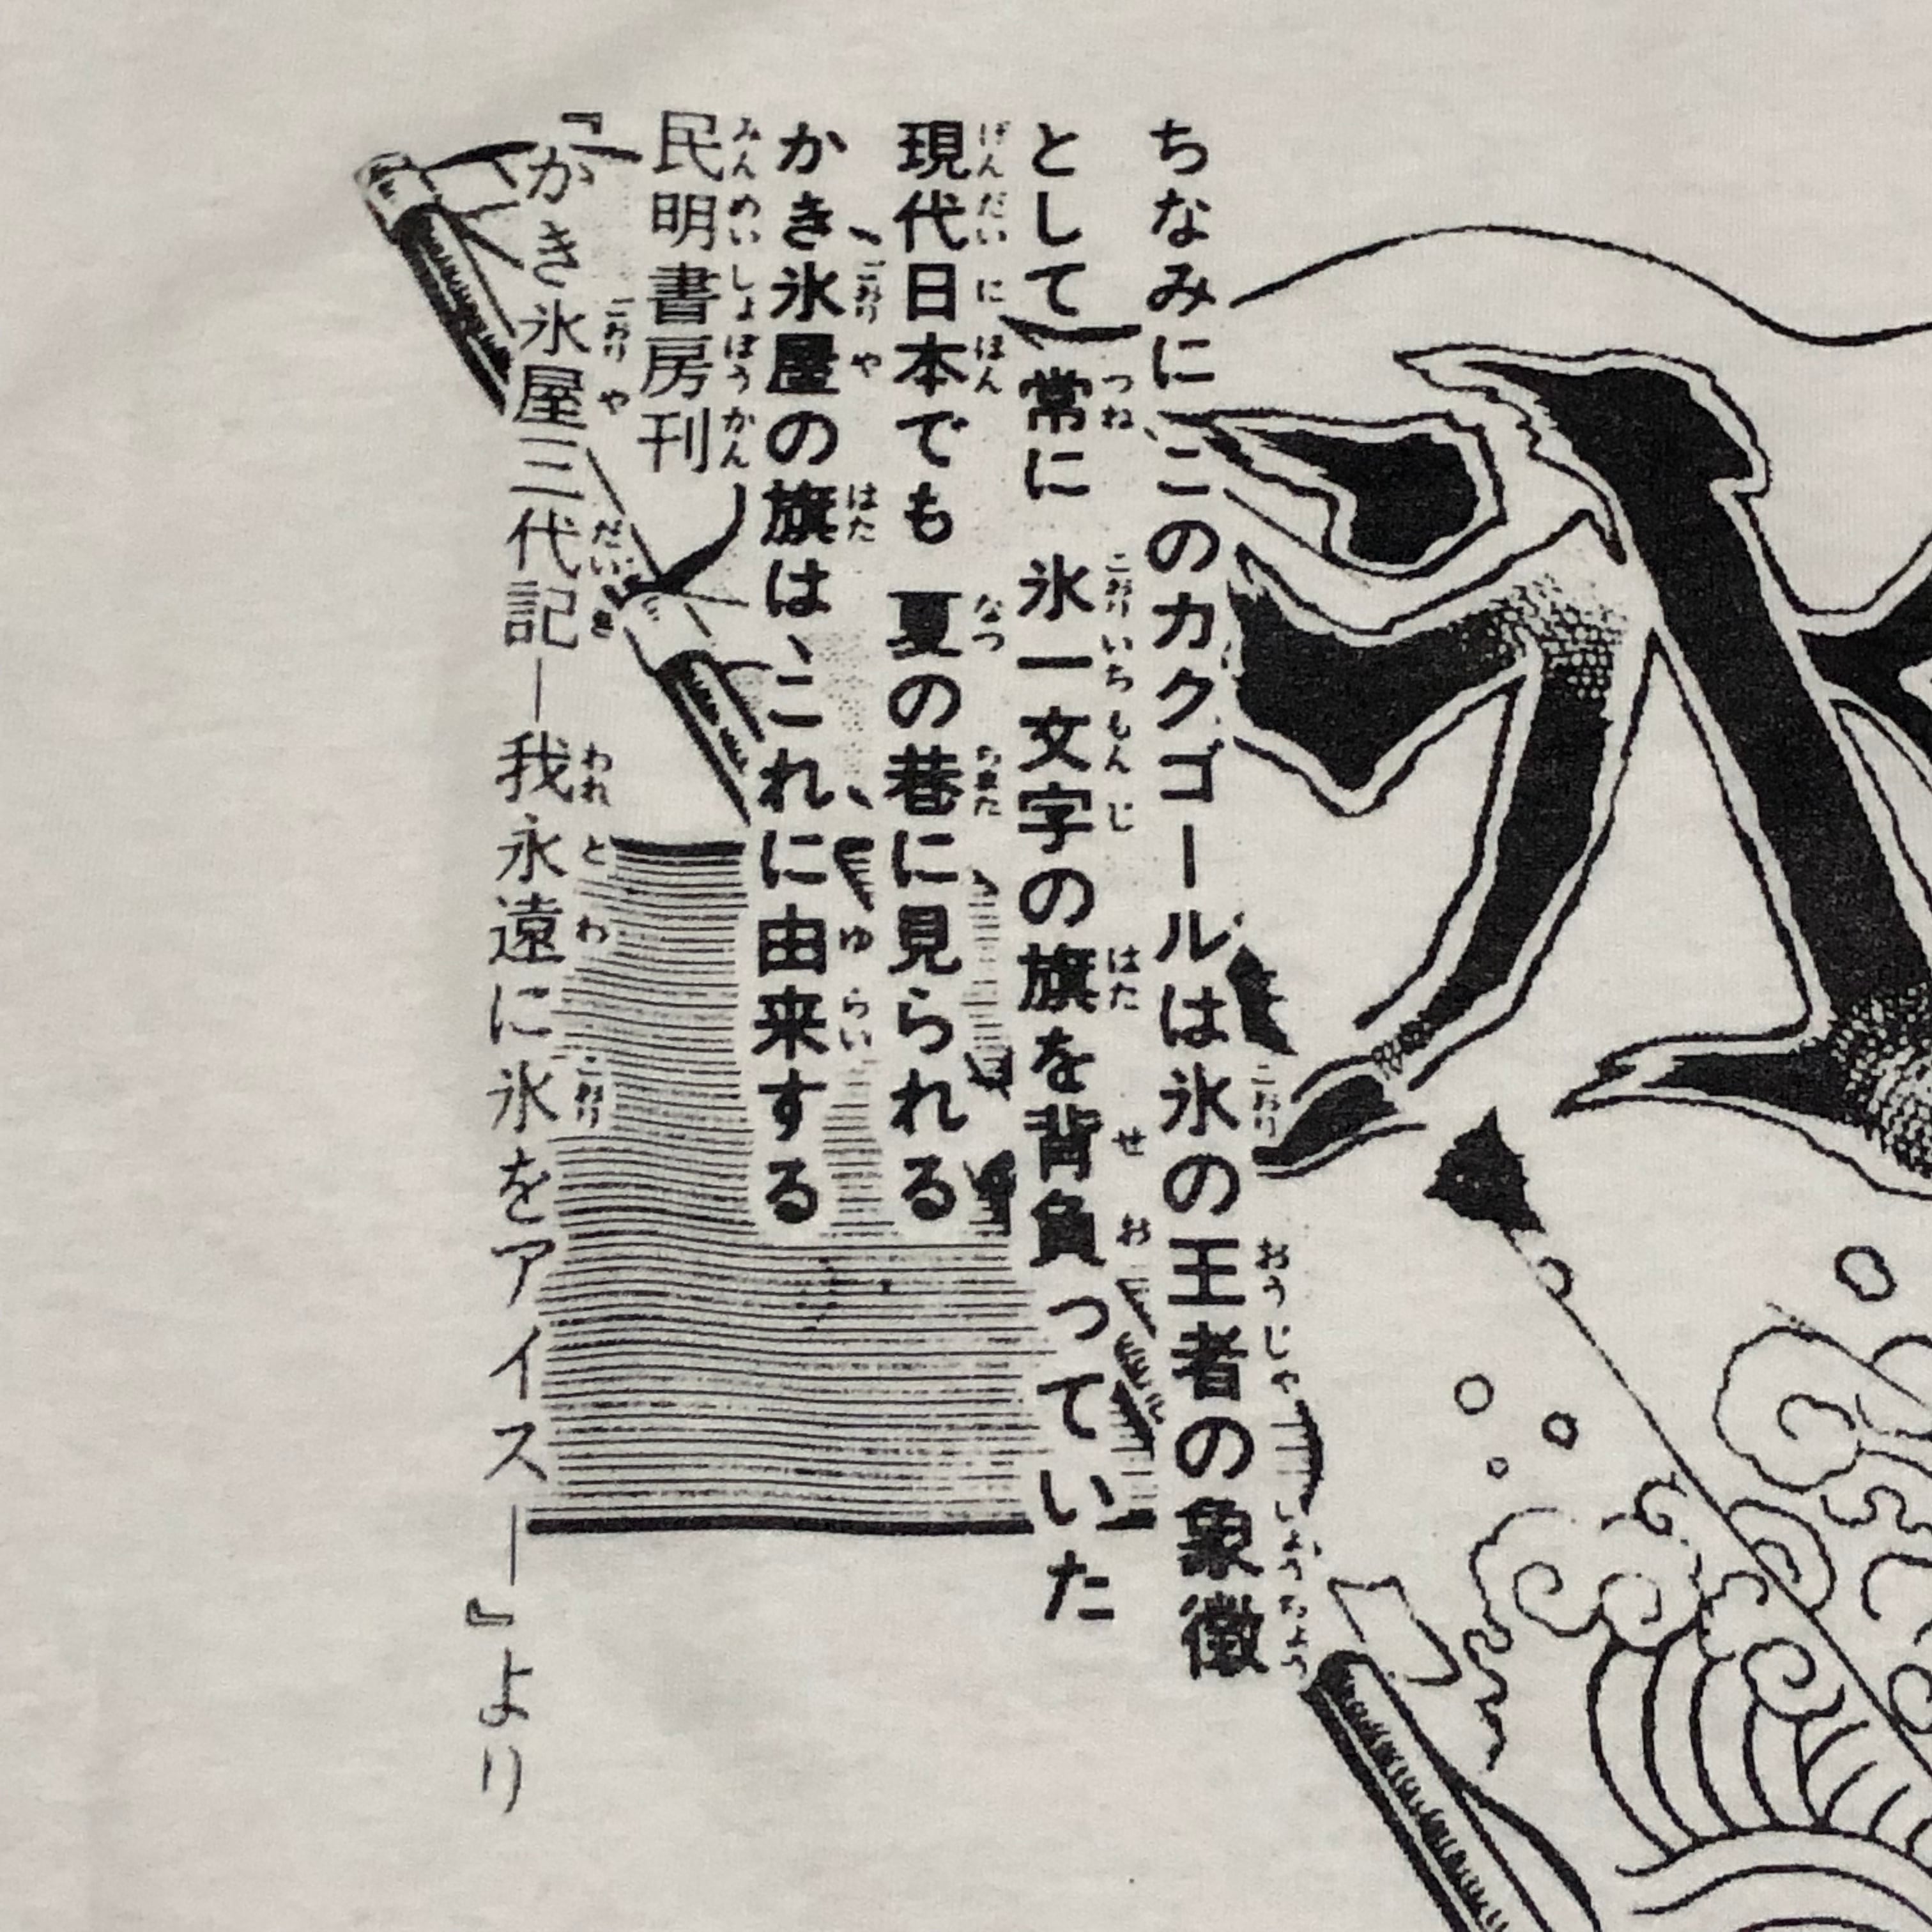 ちなみに、このカクゴールは氷の王者の象徴
として常に 氷一文字の旗を背負っていた
現代日本でも 夏の巷に見られる
かき氷屋の旗は、これに由来する
民明書房刊
『かき氷屋三代記―我永遠に氷をアイス―』より